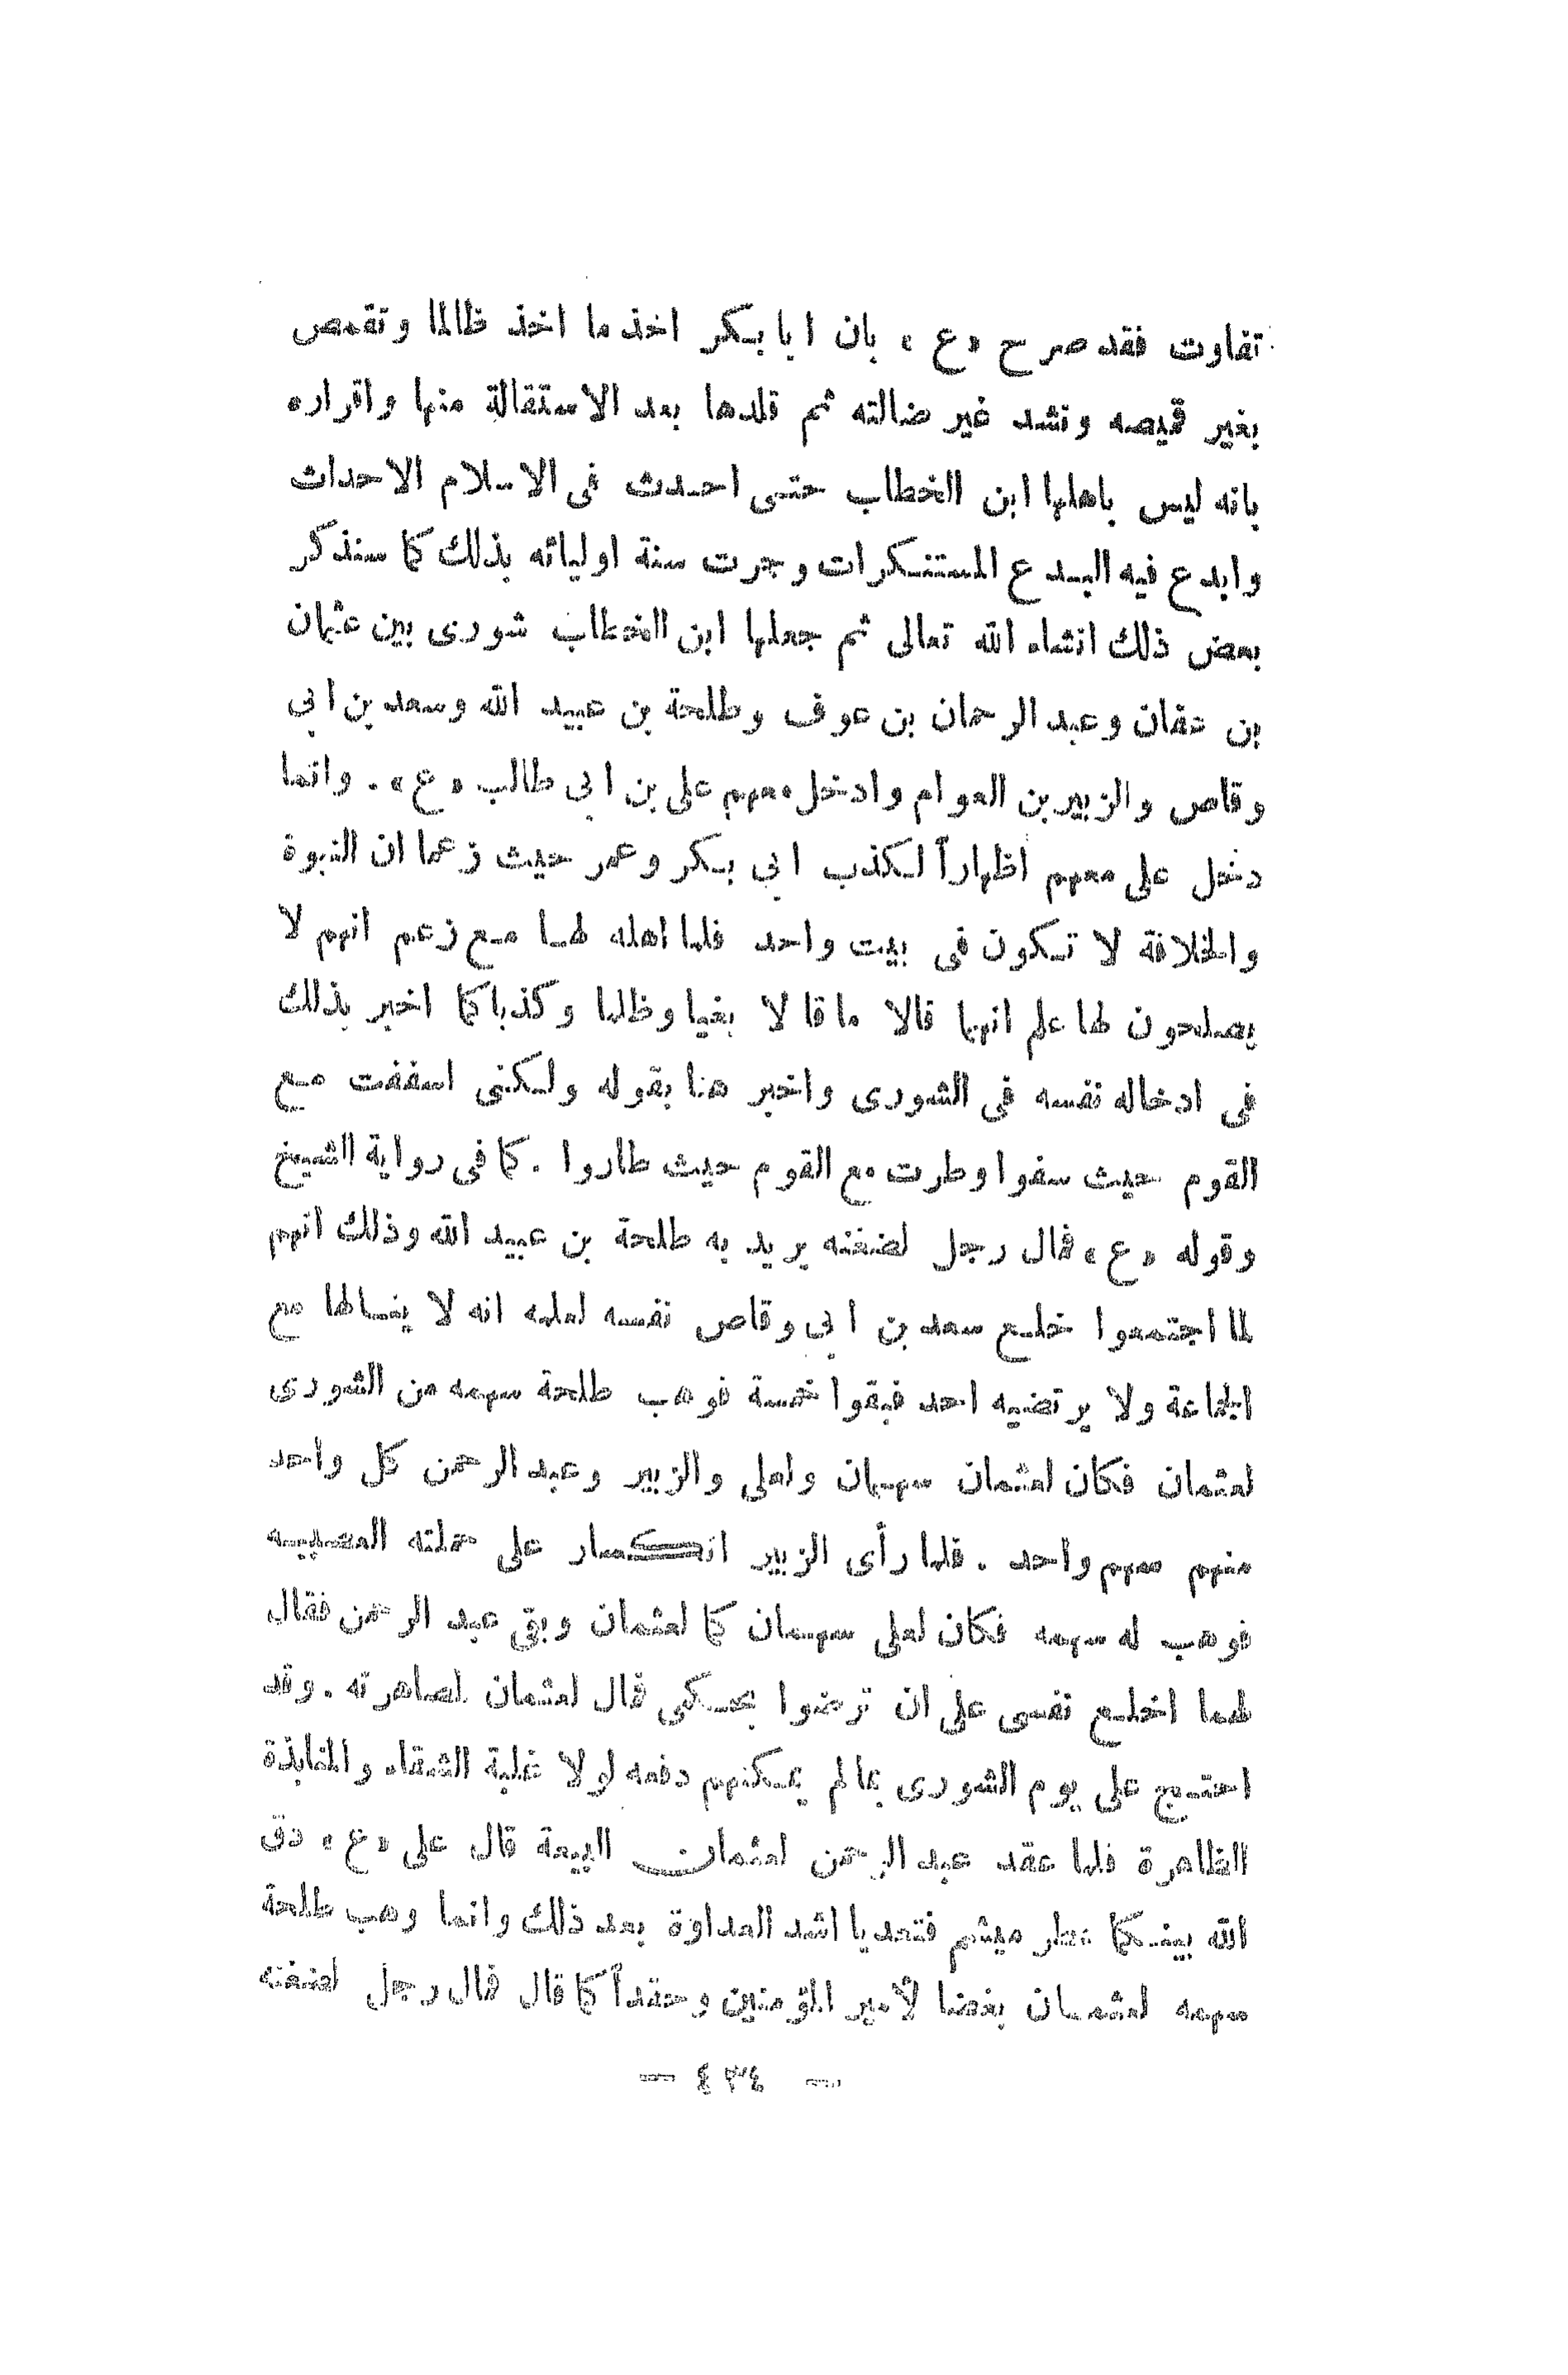 تفاوت فقد صرح «ع» بان ابا بكر اخذ ما اخذ ظالما وتقمص
بغير قميصه ونشد غير ضالته ثم قلدها بعد الاستقالة منها واقراره
بانه ليس باهلها ابن الخطاب حتى احدث فى الاسلام الاحداث
وابدع فيه البدع المستنكرات وجرت سنة اوليائه بذلك كما سنذكر
بعض ذلك انشاء الله تعالى ثم جعلها ابن الخطاب شورى بين عثمان
بن عفان وعبد الرحمان بن عوف وطلحة بن عبيد الله وسعد بن ابي
وقاص والزبير بن العوام وادخل معهم على بن ابي طالب «ع». وانما
دخل على معهم اظهاراً لكذب ابي بكر وعمر حيث زعما ان النبوة
والخلافة لا تكون فى بيت واحد فلما اهله لها مع زعم انهم لا
يصلحون لها علم انهما قالا ما قالا بغيا وظلما وكذبا كما اخبر بذلك
فى ادخاله نفسه فى الشورى واخبر هنا بقوله ولكنى اسففت مع
القوم حيث سفوا وطرت مع القوم حيث طاروا . كما فى رواية الشيخ
وقوله «ع» فمال رجل لضغنه يريد به طلحة بن عبيد الله وذلك انهم
لما اجتمعوا خلع سعد بن ابي وقاص نفسه لعلمه انه لا ينالها مع
الجماعة ولا يرتضيه احد فبقوا خمسة فوهب طلحة سهمه من الشورى
لعثمان فكان لعثمان سهمان ولعلى والزبير وعبد الرحمن كل واحد
منهم سهم واحد . فلما رأى الزبير انكسار على حملته العصبيه
فوهب له سهمه فكان لعلى سهمان كما لعثمان وبقى عبد الرحمن فقال
لهما اخلع نفسى على ان ترضوا بحكمى فمال لعثمان لصاهرته . وقد
احتج على يوم الشورى بما لم يمكنهم دفعه لولا غلبة الشقاء والمنابذة
الظاهرة فلما عقد عبد الرحمن لعثمان البيعة قال على «ع» دق
الله بينكما عطر ميشم فتعديا اشد العداوة بعد ذلك وانما وهب طلحة
سهمه لعثمان بغضا لأمير المؤمنين وحقداً كما قال فمال رجل لضغنه
— ٤٣٤ —